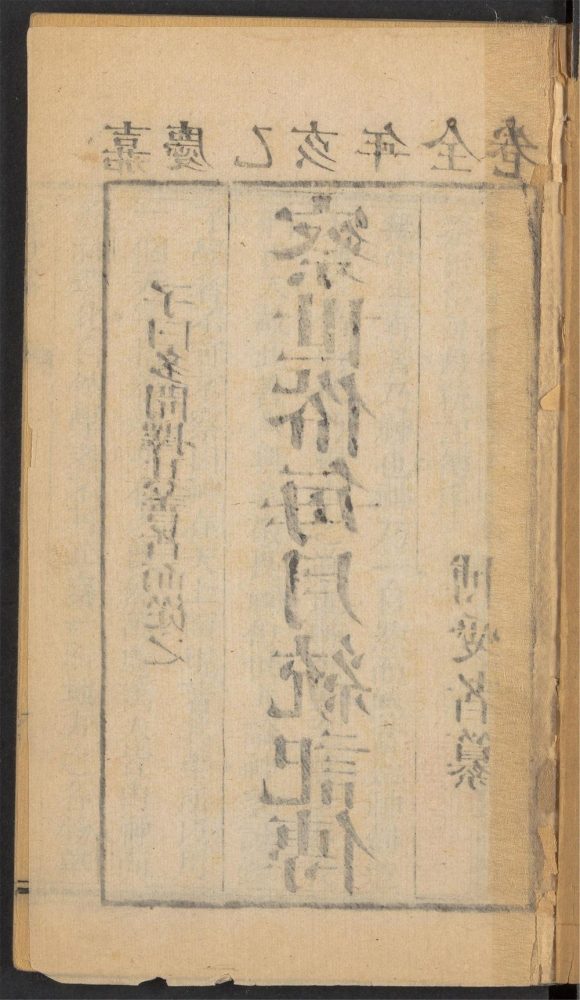 嘉慶乙亥年全卷
子曰多聞擇其善者而從之
察世俗每月統記傳
博愛者纂